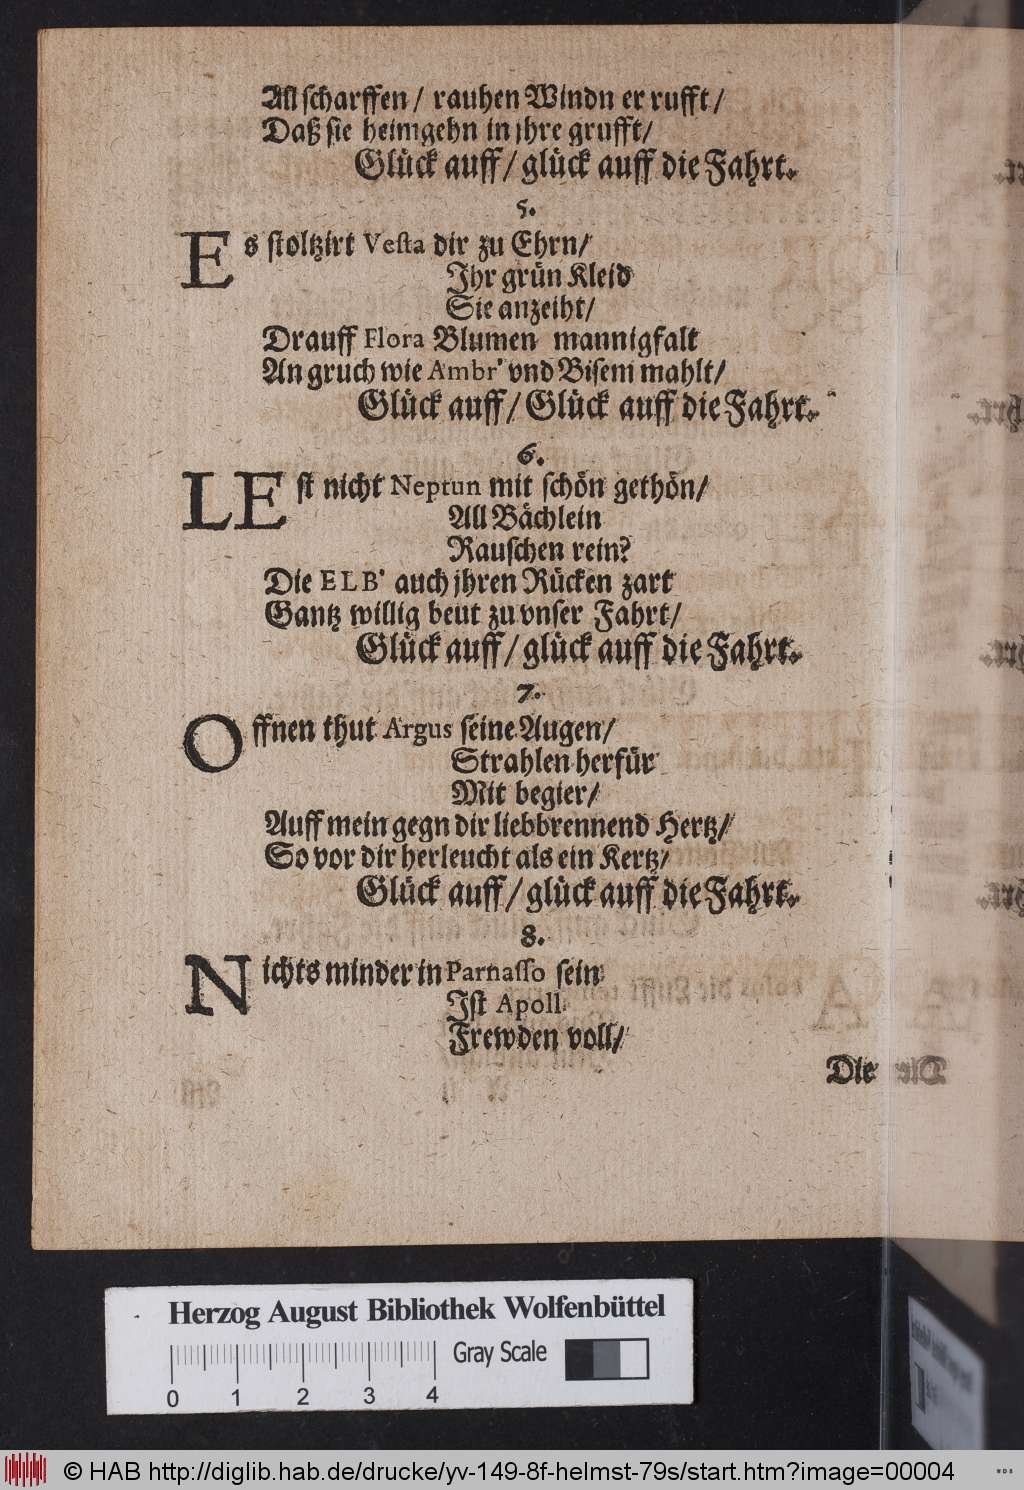 All scharffen / rauhen Windn er rufft /
Daß sie heimgehn in jhre grufft /
Glück auff / glück auff die Fahrt.
5.
Es stoltzirt Vesta dir zu Ehrn /
Ihr grün Kleid
Sie anzeiht /
Drauff Flora Blumen mannigfalt
An gruch wie Ambr' vnd Bisem mahlt /
Glück auff / Glück auff die Fahrt.
6.
LEst nicht Neptun mit schön gethön /
All Bächlein
Rauschen rein?
Die ELB' auch jhren Rücken zart
Gantz willig beut zu vnser Fahrt /
Glück auff / glück auff die Fahrt.
7.
Offnen thut Argus seine Augen /
Strahlen herfür
Mit begier /
Auff mein gegn dir liebbrennend Hertz /
So vor dir herleucht als ein Kertz /
Glück auff / glück auff die Fahrt.
8.
Nichts minder in Parnasso sein
Ist Apoll
Frewden voll /
Die
Herzog August Bibliothek Wolfenbüttel
Gray Scale
0 1 2 3 4
© HAB http://diglib.hab.de/drucke/yv-149-8f-helmst-79s/start.htm?image=00004